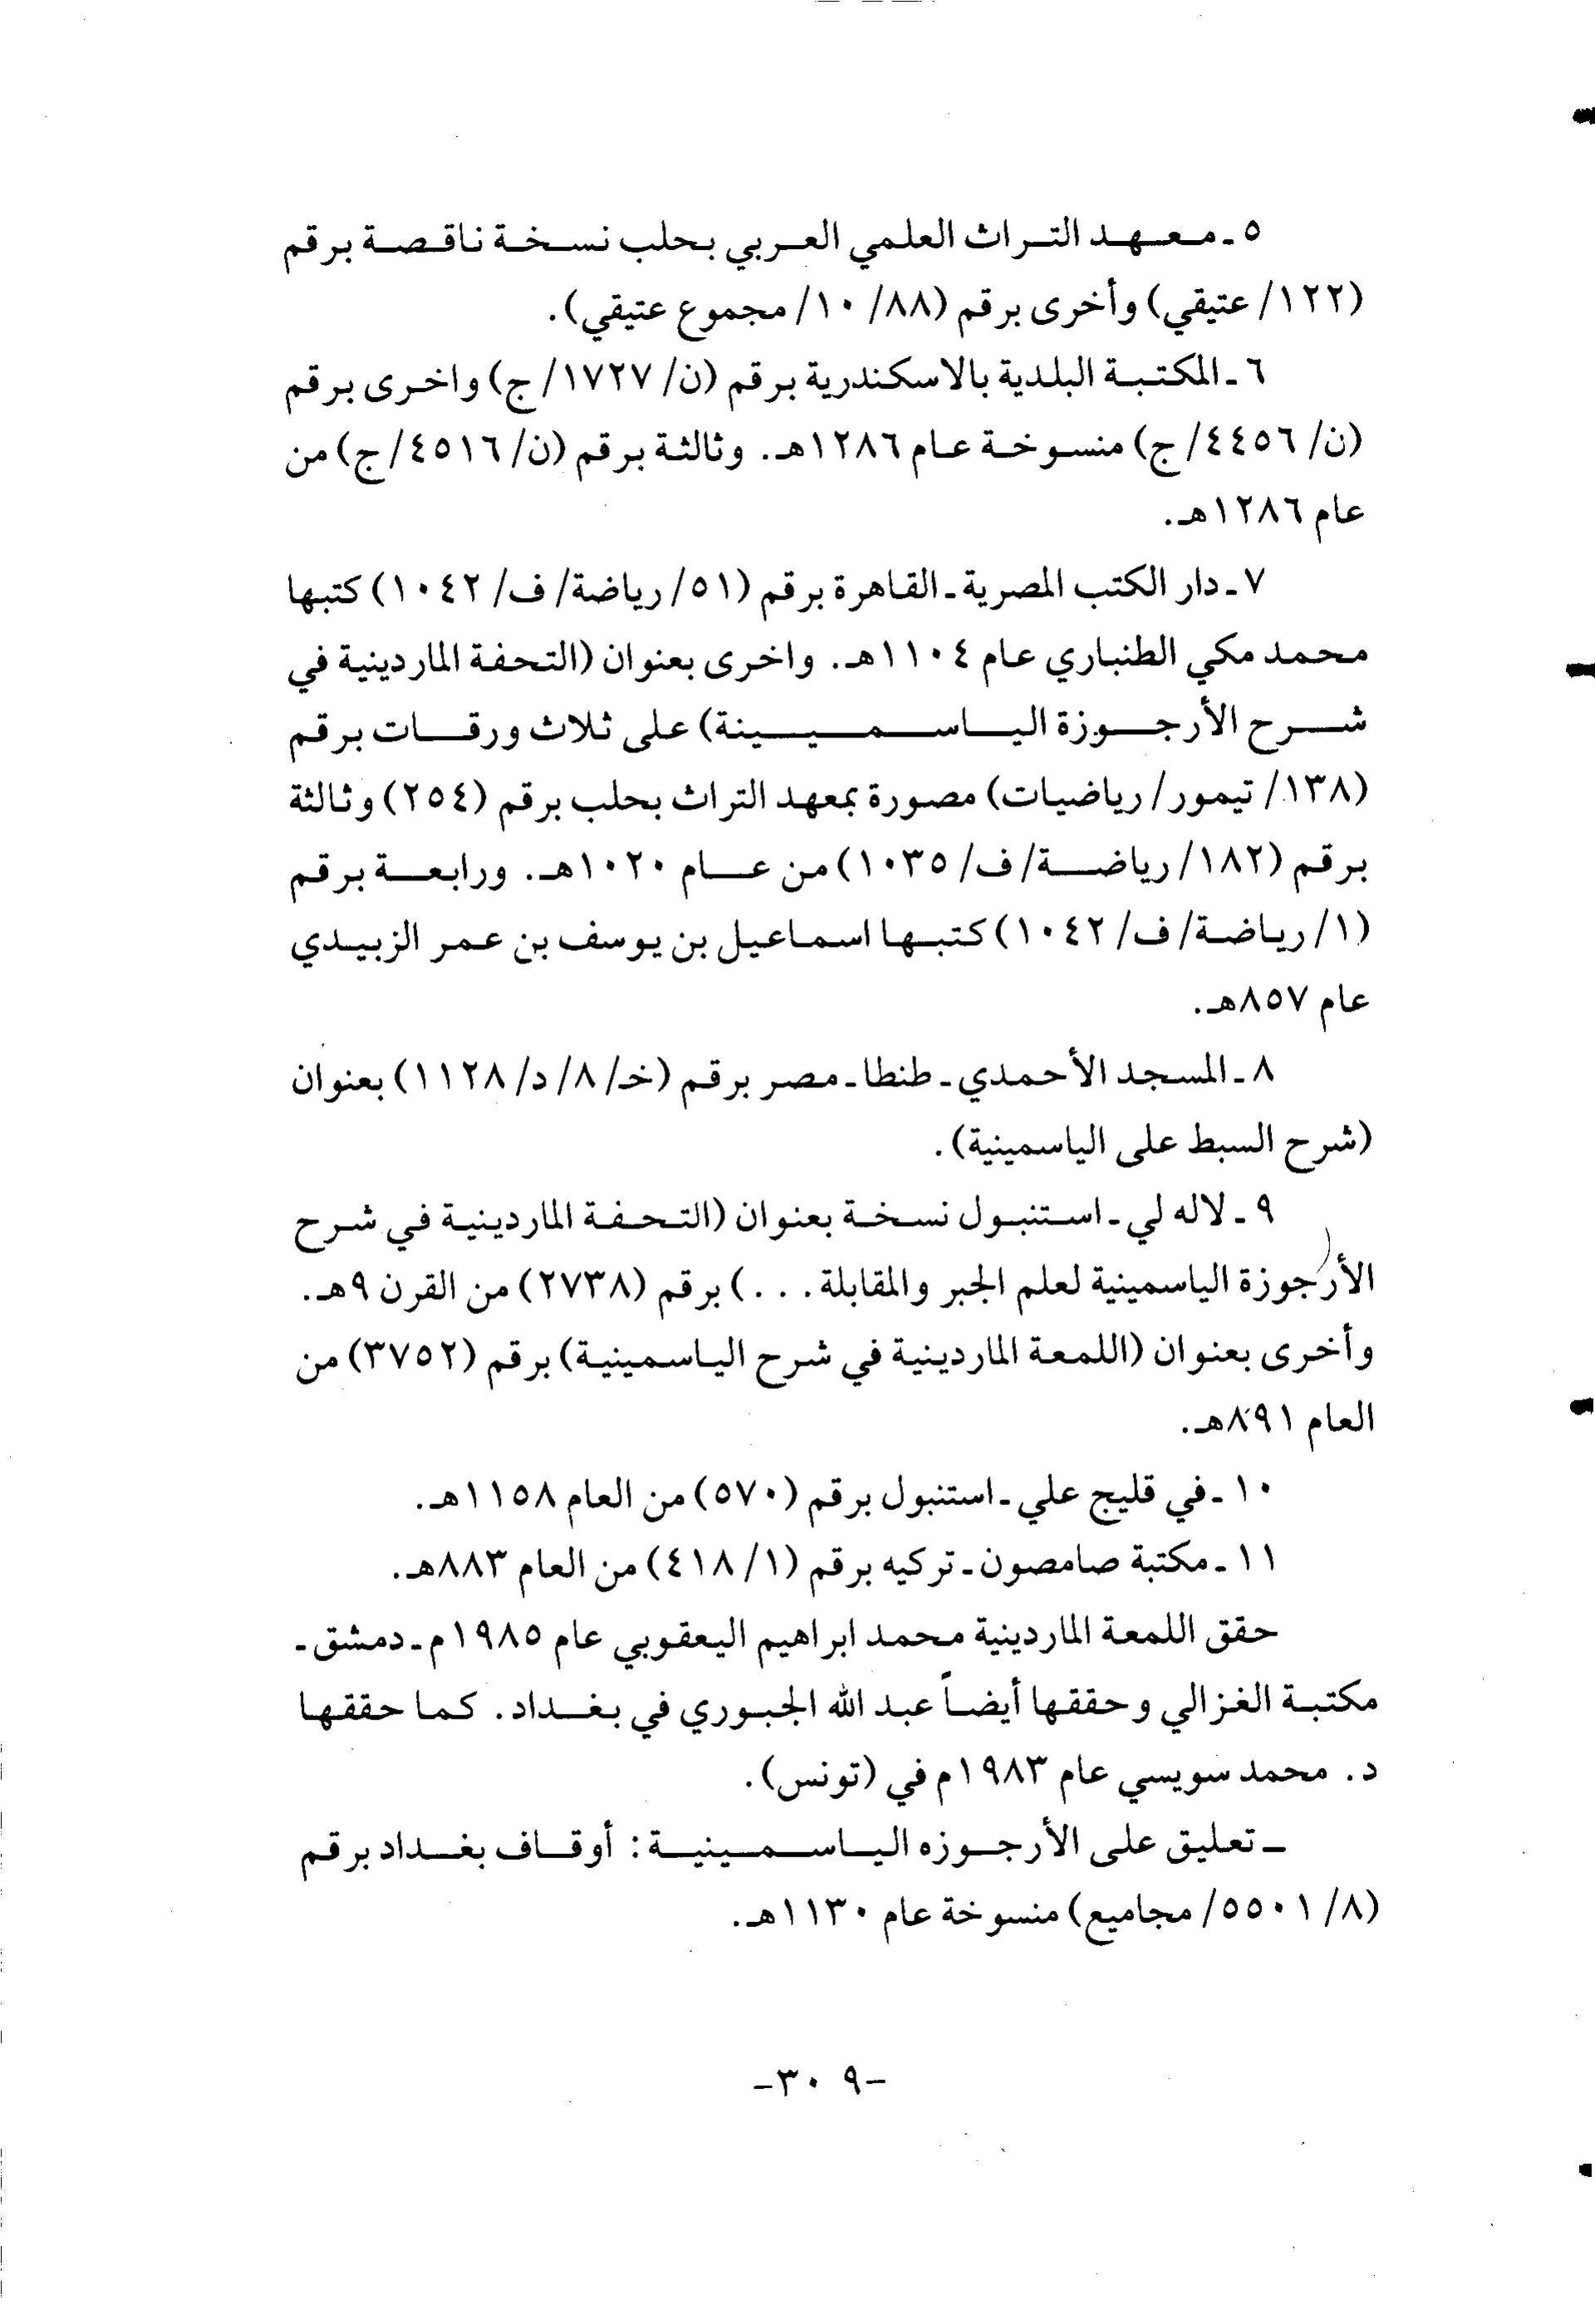 ٥ ـ معهد التراث العلمي العربي بحلب نسخة ناقصة برقم
(١٢٢/ عتيقي) وأخرى برقم (٨٨/ ١٠/ مجموع عتيقي).
٦ ـ المكتبة البلدية بالاسكندرية برقم (ن/ ١٧٢٧/ ج) واخرى برقم
(ن/ ٤٤٥٦/ ج) منسوخة عام ١٢٨٦هـ. وثالثة برقم (ن/ ٤٥١٦/ ج) من
عام ١٢٨٦هـ.
٧ ـ دار الكتب المصرية ـ القاهرة برقم (٥١/ رياضة/ ف/ ١٠٤٢) كتبها
محمد مكي الطنباري عام ١١٠٤هـ. واخرى بعنوان (التحفة الماردينية في
شرح الأرجوزة الياسميينة) على ثلاث ورقات برقم
(١٣٨/ تيمور/ رياضيات) مصورة بمعهد التراث بحلب برقم (٢٥٤) وثالثة
برقم (١٨٢/ رياضة/ ف/ ١٠٣٥) من عام ١٠٢٠هـ. ورابعة برقم
(١/ رياضة/ ف/ ١٠٤٢) كتبها اسماعيل بن يوسف بن عمر الزبيدي
عام ٨٥٧هـ.
٨ ـ المسجد الأحمدي ـ طنطا ـ مصر برقم (خـ/ ٨/ د/ ١١٢٨) بعنوان
(شرح السبط على الياسمينية).
٩ ـ لاله لي ـ استنبول نسخة بعنوان (التحفة الماردينية في شرح
الأرجوزة الياسمينية لعلم الجبر والمقابلة . . .) برقم (٢٧٣٨) من القرن ٩هـ.
وأخرى بعنوان (اللمعة الماردينية في شرح الياسمينية) برقم (٣٧٥٢) من
العام ٨٩١هـ.
١٠ ـ في قليج علي ـ استنبول برقم (٥٧٠) من العام ١١٥٨هـ.
١١ ـ مكتبة صامصون ـ تركيه برقم (١/ ٤١٨) من العام ٨٨٣هـ.
حقق اللمعة الماردينية محمد ابراهيم اليعقوبي عام ١٩٨٥م ـ دمشق ـ
مكتبة الغزالي وحققها أيضاً عبد الله الجبوري في بغداد. كما حققها
د. محمد سويسي عام ١٩٨٣م في (تونس).
ـ تعليق على الأرجوزه الياسمينية: أوقاف بغداد برقم
(٨/ ٥٥٠١/ مجاميع) منسوخة عام ١١٣٠هـ.
-٣٠٩-